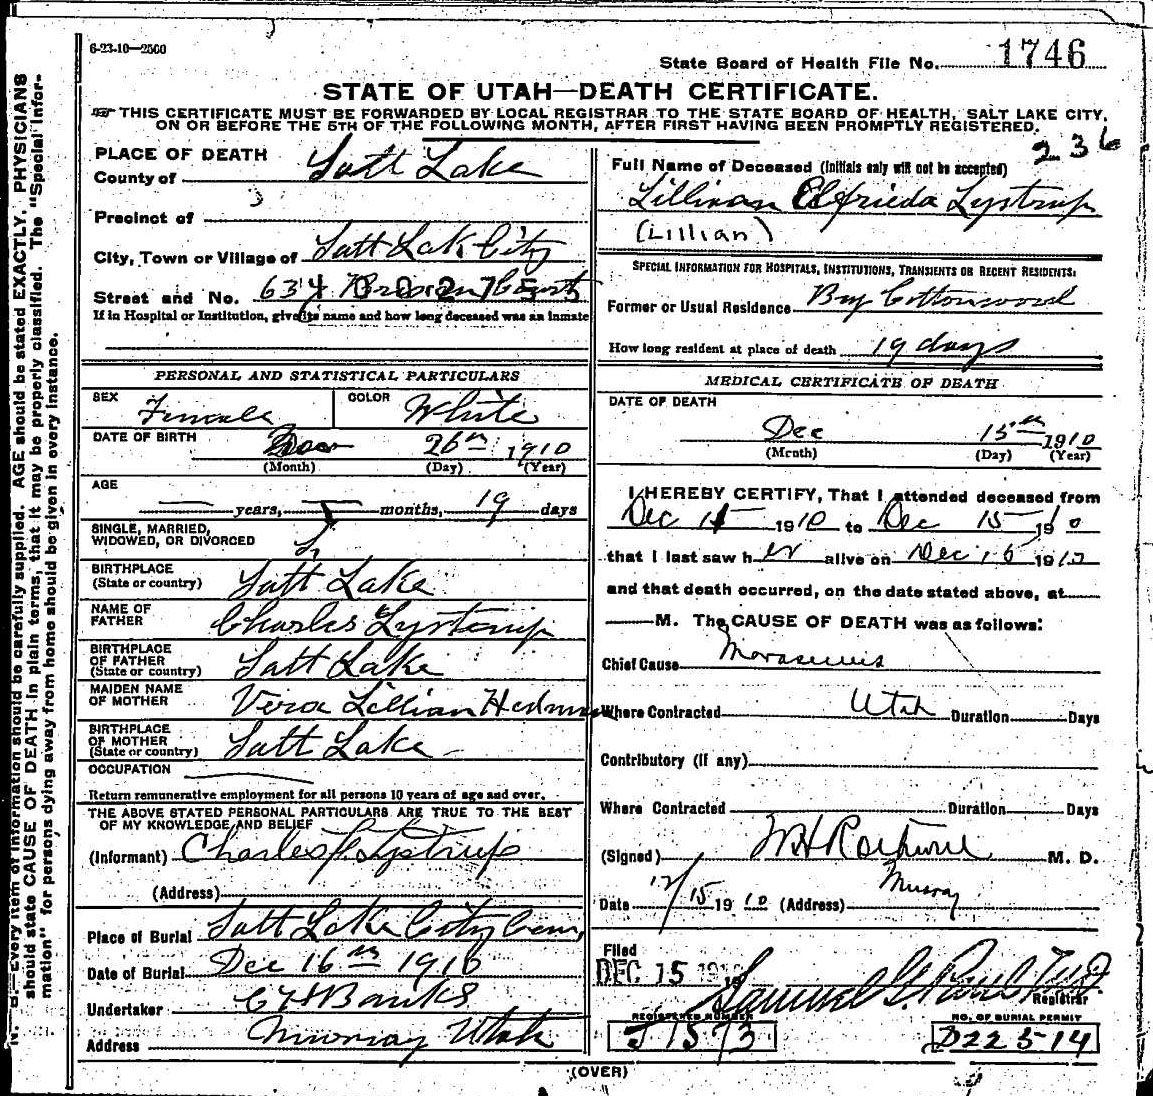 6-23-10—2500
State Board of Health File No. 1746
STATE OF UTAH—DEATH CERTIFICATE.
THIS CERTIFICATE MUST BE FORWARDED BY LOCAL REGISTRAR TO THE STATE BOARD OF HEALTH, SALT LAKE CITY,
ON OR BEFORE THE 5TH OF THE FOLLOWING MONTH, AFTER FIRST HAVING BEEN PROMPTLY REGISTERED.
236
PLACE OF DEATH
County of Salt Lake
Precinct of
City, Town or Village of Salt Lake City
Street and No. 634 Court
If in Hospital or Institution, give its name and how long deceased was an inmate
PERSONAL AND STATISTICAL PARTICULARS
SEX Female COLOR White
DATE OF BIRTH 26th 1910
(Month) (Day) (Year)
AGE
years, months, 19 days
SINGLE, MARRIED,
WIDOWED, OR DIVORCED S
BIRTHPLACE
(State or country) Salt Lake
NAME OF
FATHER Charles Lystrup
BIRTHPLACE
OF FATHER
(State or country) Salt Lake
MAIDEN NAME
OF MOTHER Vera Lillian
BIRTHPLACE
OF MOTHER
(State or country) Salt Lake
OCCUPATION
Return remunerative employment for all persons 10 years of age and over.
THE ABOVE STATED PERSONAL PARTICULARS ARE TRUE TO THE BEST
OF MY KNOWLEDGE AND BELIEF
(Informant) Charles P. Lystrup
(Address)
Place of Burial Salt Lake City Cem,
Date of Burial Dec 16th 1910
Undertaker Banks
Address Murray Utah
Full Name of Deceased (Initials only will not be accepted)
Lillivan Elfrieda Lystrup
(Lillian)
SPECIAL INFORMATION FOR HOSPITALS, INSTITUTIONS, TRANSIENTS OR RECENT RESIDENTS:
Former or Usual Residence Big Cottonwood
How long resident at place of death 19 days
MEDICAL CERTIFICATE OF DEATH
DATE OF DEATH
Dec 15th 1910
(Month) (Day) (Year)
I HEREBY CERTIFY, That I attended deceased from
Dec 1910 to Dec 15 1910
that I last saw her alive on Dec 15 1910
and that death occurred, on the date stated above, at
M. The CAUSE OF DEATH was as follows:
Chief Cause Marasmus
Where Contracted Utah Duration Days
Contributory (if any)
Where Contracted Duration Days
(Signed) M. D.
Date 12/15 1910 (Address) Murray
Filed
DEC 15 1910 Samuel G. Paul M.D.
Registrar
REGISTERED NUMBER
J1573
NO. OF BURIAL PERMIT
D22514
(OVER)
N. B.—Every item of information should be carefully supplied. AGE should be stated EXACTLY. PHYSICIANS
should state CAUSE OF DEATH in plain terms, that it may be properly classified. The "Special Information"
for persons dying away from home should be given in every instance.